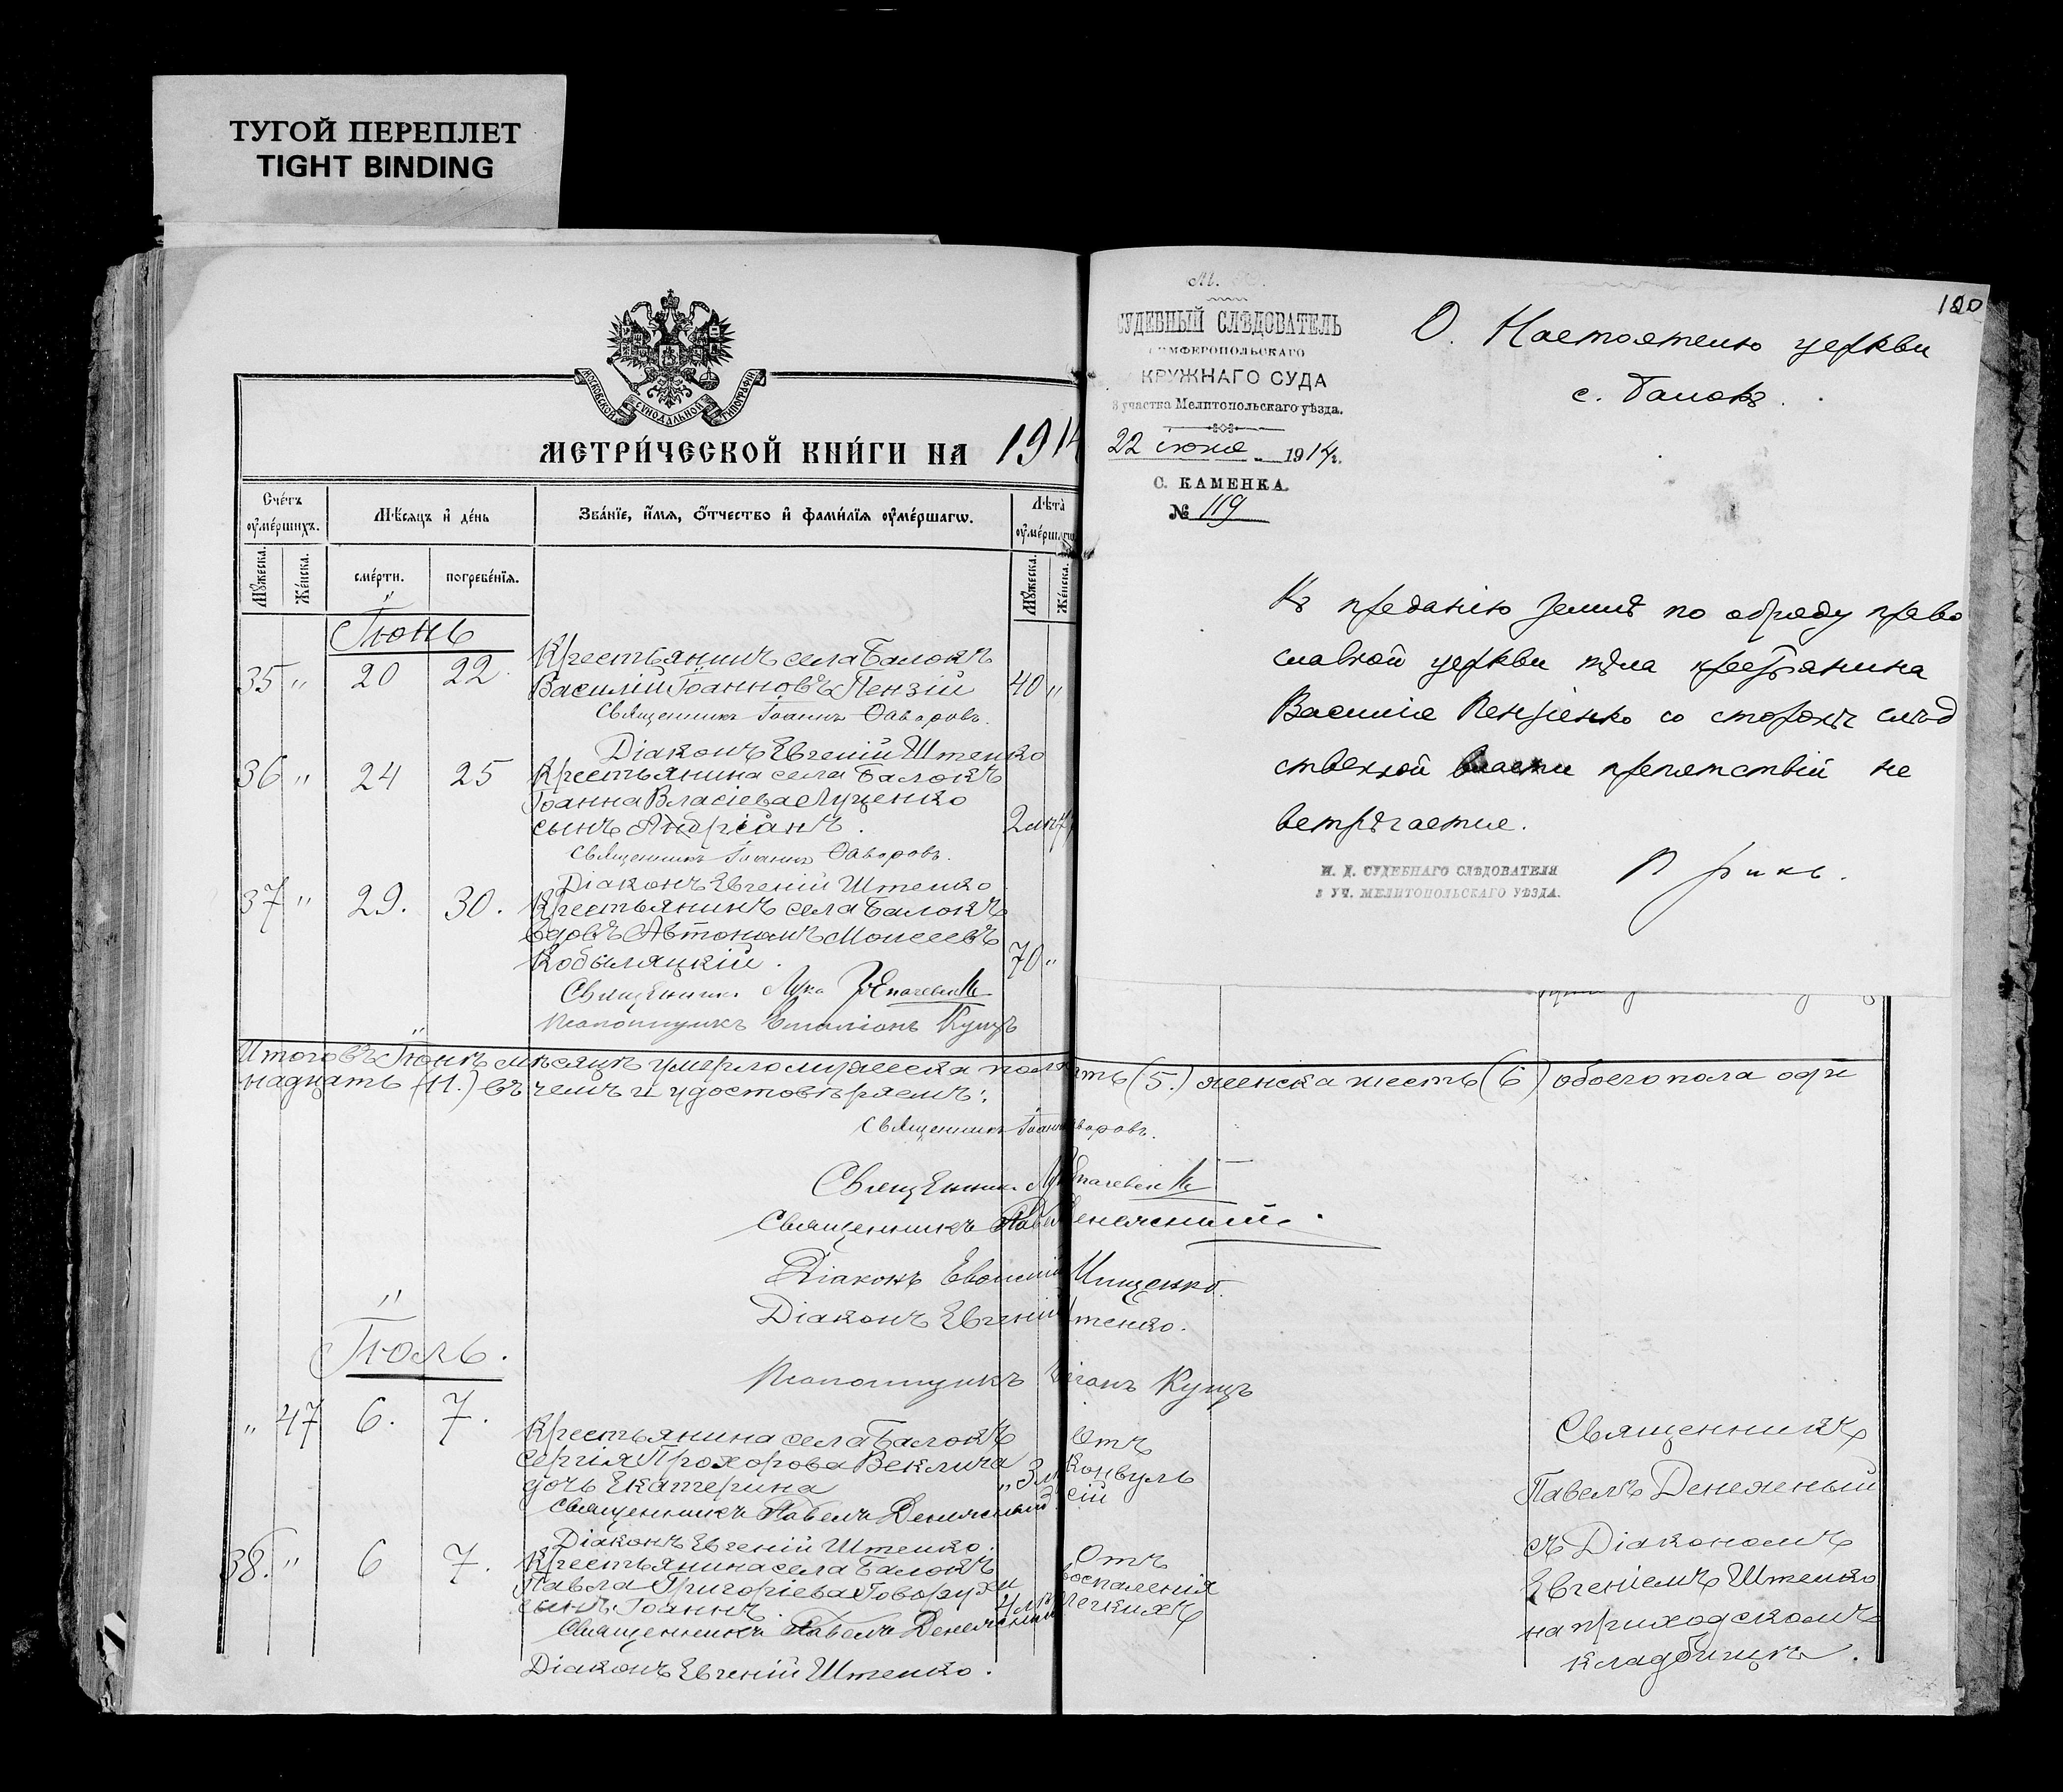 ТУГОЙ ПЕРЕПЛЕТ
TIGHT BINDING
МОСКОВСКОЙ СѴНОДАЛЬНОЙ ТИПОГРАФІИ
МЕТРИ́ЧЕСКОЙ КНИ́ГИ НА 1914
Сче́тъ ѹ҆ме́ршихъ.
Мѣ́сяцъ и҆ де́нь
Зва́нїе, и҆́мѧ, ѻ҆́тчество и҆ фами́лїѧ ѹ҆ме́ршагѡ.
Лѣ́та ѹ҆ме́ршагѡ
Мꙋ́жеска.
Же́нска.
сме́рти.
погребе́нїѧ.
Мꙋ́жеска.
Же́нска.
Іюнь
35 " 20 22. Крестьянинъ села Балокъ
Василій Іоанновъ Пензій 40 "
Священникъ Іоаннъ Ѳаворовъ.
Діаконъ Евгеній Штепко
36 " 24 25 Крестьянина села Балокъ
Іоанна Власіева Луценко
сынъ Андріанъ.
Священникъ Іоаннъ Ѳаворовъ.
Діаконъ Евгеній Штепко
37 " 29. 30. Крестьянинъ села Балокъ
вдовъ Автономъ Моисеевъ
Кобыляцкій. 70 "
Священникъ Лука
Псаломщикъ Куцъ
Итого въ Іюнѣ мѣсяцѣ умерло мужеска пола ть (5.) женска шесть (6) обоего пола оди
надцать (11.) въ чемъ и удостовѣряемъ:
Священникъ Іоанн воровъ.
Священникъ
Священникъ Паве енежный.
Діаконъ Ищенко.
Діаконъ Евгеній тепко.
Псаломщикъ Куцъ
Іюль.
" 47 6. 7. Крестьянина села Балокъ
Сергія Прохорова Веклича
дочь Екатерина
Священникъ Павелъ Денежный
Діаконъ Евгеній Штепко.
Отъ
конвуль
сій
38. " 6 7. Крестьянина села Балокъ
Павла Григоріева Говорухи
сынъ Іоаннъ.
Священникъ Павелъ Денежный
Діаконъ Евгеній Штепко.
Отъ
воспаленія
легкихъ
Священникъ
Павелъ Денежный
съ Діакономъ
Евгеніемъ Штепко
на приходскомъ
кладбищѣ.
120
М. Ю.
СУДЕБНЫЙ СЛѢДОВАТЕЛЬ
СИМФЕРОПОЛЬСКАГО
КРУЖНАГО СУДА
3 участка Мелитопольскаго уѣзда.
22 іюня 1914 г.
С. КАМЕНКА.
№ 119
О. Настоятелю церкви
с. Балокъ.
Къ преданію землѣ по обряду право
славной церкви тѣла крестьянина
Василія Пензіенко со стороны слѣд
ственной власти препятствій не
встрѣчается.
И. Д. СУДЕБНАГО СЛѢДОВАТЕЛЯ
3 УЧ. МЕЛИТОПОЛЬСКАГО УѢЗДА.